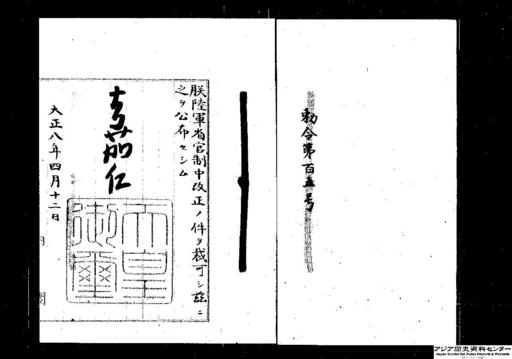 勅令第百五号
朕陸軍省官制中改正ノ件ヲ裁可シ玆ニ
之ヲ公布セシム
嘉仁
天皇
御璽
大正八年四月十二日
内
アジア歴史資料センター
Japan Center for Asian Historical Records